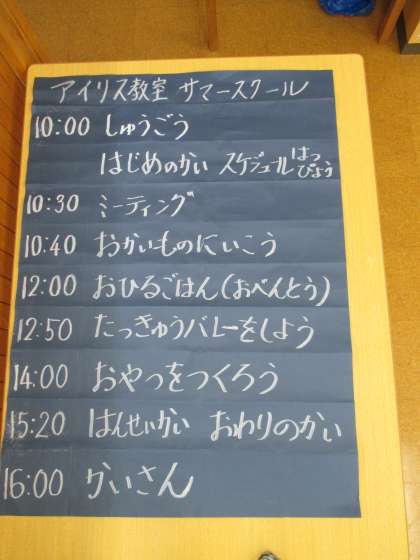 アイリス教室 サマースクール
10:00 しゅうごう
はじめのかい スケジュールはっぴょう
10:30 ミーティング
10:40 おかいものにいこう
12:00 おひるごはん(おべんとう)
12:50 たっきゅうバレーをしよう
14:00 おやつをつくろう
15:20 はんせいかい おわりのかい
16:00 かいさん